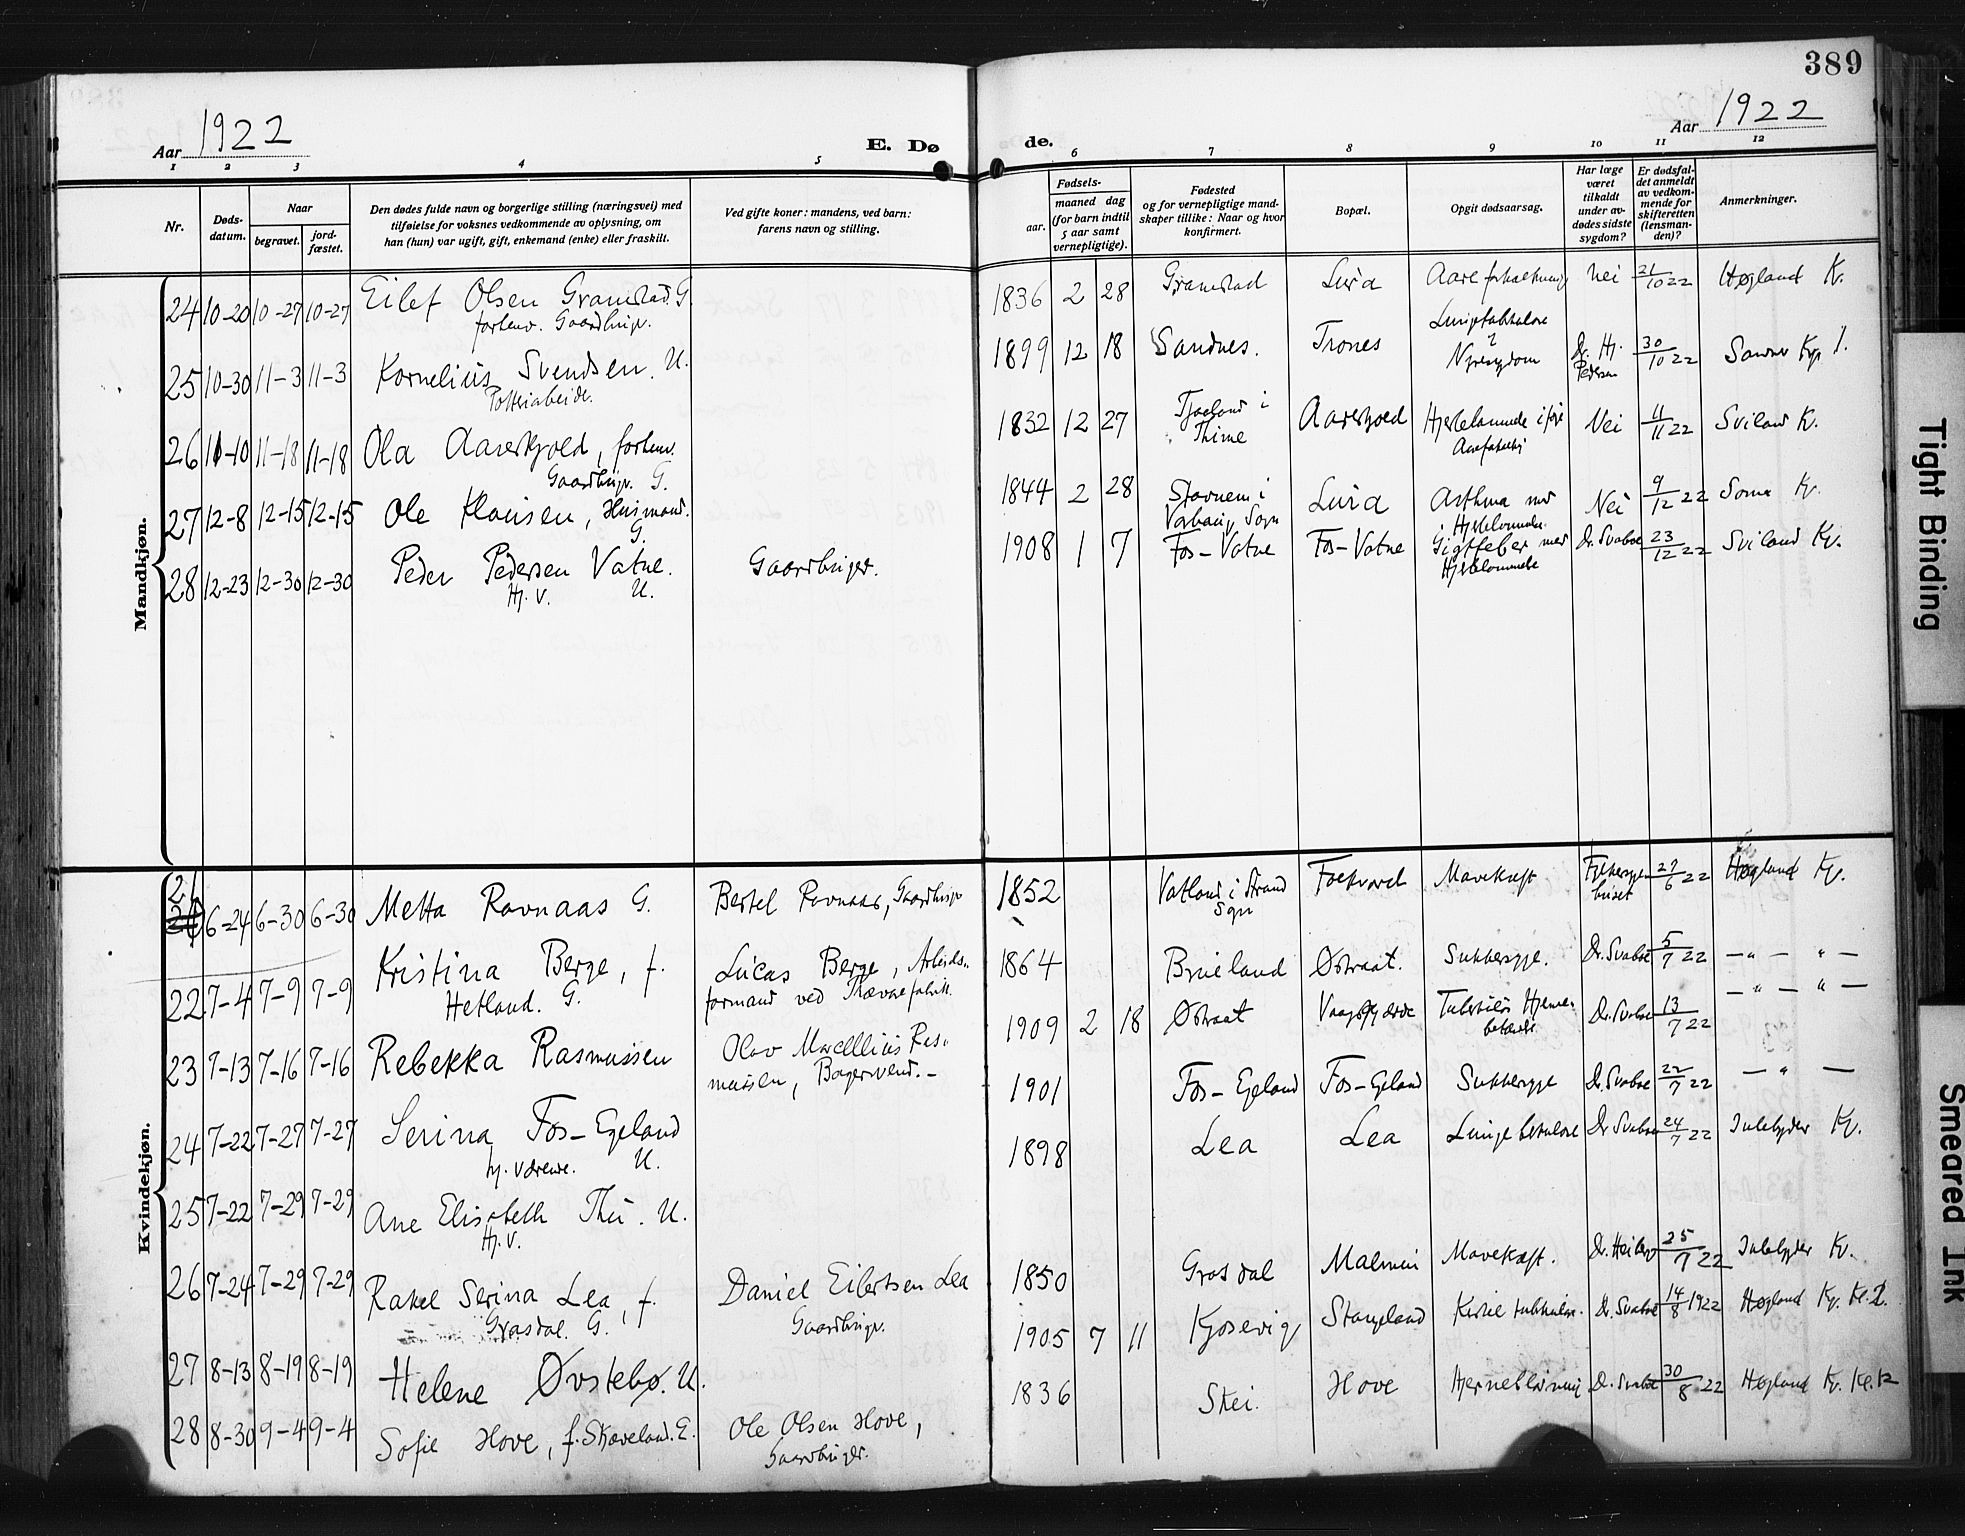 389
Aar 1922
E. Dø
de.
Aar 1922
1 2 3 4 5 6 7 8 9 10 11 12
Nr.
Døds-
datum.
Naar
begravet.
jord-
fæstet.
Den dødes fulde navn og borgerlige stilling (næringsvei) med
tilføielse for voksnes vedkommende av oplysning, om
han (hun) var ugift, gift, enkemand (enke) eller fraskilt.
Ved gifte koner: mandens, ved barn:
farens navn og stilling.
Fødsels-
aar.
maaned dag
(for barn indtil
5 aar samt
vernepligtige).
Fødested
og for vernepligtige mand-
skaper tillike: Naar og hvor
konfirmert.
Bopæl.
Opgit dødsaarsag.
Har læge
været
tilkaldt
under av-
dødes sidste
sygdom?
Er dødsfal-
det anmeldt
av vedkom-
mende for
skifteretten
(lensman-
den)?
Anmerkninger.
Mandkjøn.
24 10-20 10-27 10-27 Eilef Olsen Gramstad. G.
forhenv. Gaardbruger.
1836 2 28 Gramstad Lura Aareforkalkning Nei 21/10 22 Høgland Kr.
25 10-30 11-3 11-3 Kornelius Svendsen. U.
Potteriarbeider.
1899 12 18 Sandnes. Trones Lungetuberkulose
Nyresygdom Dr. Hj.
Pedersen 30/10 22
26 11-10 11-18 11-18 Ola Aareskjold, forhenv.
Gaardbruger. G.
1832 12 27 Tjaaland i
Thime Aareskjold Hjertelammelse Nei 11/11 22 Sviland Kr.
27 12-8 12-15 12-15 Ole Klausen, Husmand.
G.
1844 2 28 Lura Asthma med
Hjertelammelse. Nei 9/12 22 Soma Kr.
28 12-23 12-30 12-30 Peder Pedersen Vatne.
Hj. V. U.
Gaardbruger.
1908 1 7 Fos-Vatne Fos-Vatne Gigtfeber med
Hjertelammelse Dr. Svaboe 23/12 22 Sviland Kr.
Kvindekjøn.
21 6-24 6-30 6-30 Metta Ravnaas G.
Bertel Ravnaas, Gaardbruger
1852 Vatland i Strand
Sogn Mavekræft 27/6 22 Høgland Kr.
22 7-4 7-9 7-9 Kristina Berge, f.
Hetland. G.
Lucas Berge, Arbeids-
formand ved Trævarefabrik.
1864 Brueland Østraat. Sukkersyge. Dr. Svaboe 5/7 22 — " — " —
23 7-13 7-16 7-16 Rebekka Rasmussen
Olav Marcellius Ras-
mussen, Bagersvend. -
1909 2 18 Østraat Tuberkuløs Hjerne-
betændelse Dr. Svaboe 13/7 22 — " — " —
24 7-22 7-27 7-27 Serina Fos-Egeland
hj. værende. U.
1901 Fos-Egeland Fos-Egeland Sukkersyge Dr. Svaboe 22/7 22 — " —
25 7-22 7-29 7-29 Ane Elisabeth Thu. U.
Hj. V.
1898 Lea Lea Lungetuberkulose Dr. Svaboe 24/7 22 Kr.
26 7-24 7-29 7-29 Rakel Serina Lea, f.
Grasdal. G.
Daniel Eilertsen Lea
Gaardbruger.
1850 Grasdal Malmin Mavekræft. 25/7 22 Kr.
27 8-13 8-19 8-19 Helene Øvstebø. U.
1905 7 11 Kjosevig Stangeland Dr. Svaboe 14/8 1922 Høgland Kr. Kl. 2.
28 8-30 9-4 9-4 Sofie Hove, f. Skaveland. E.
Ole Olsen Hove,
Gaardbruger.
1836 Skei. Hove Hjerneblødning Dr. Svaboe 30/8 22 Høgland Kr. Kl. 12
Tight Binding
Smeared Ink